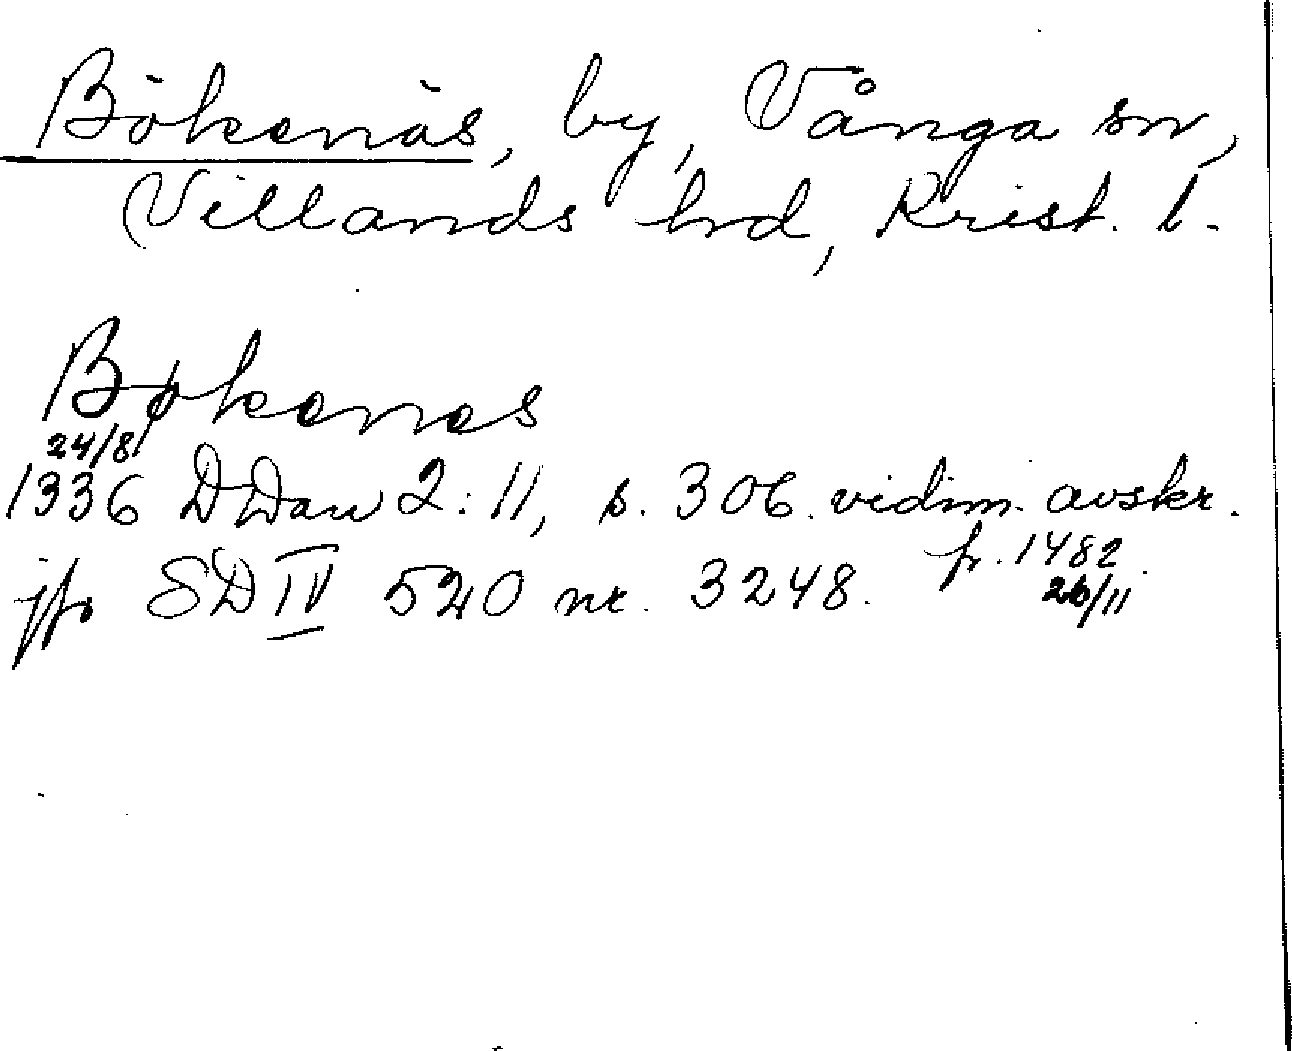 Bökenäs, by, Vånga sn,
Villands hd, Krist. l.
Bøkenes
24/8
1336 DDan 2: 11, s. 306. vidim. avskr.
fr. 1482
jfr SD IV 520 nr. 3248. 26/11